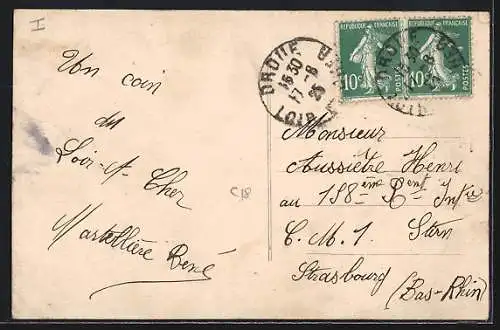 I
Un coin
du
Loir-&-Cher
Martellière René
C18
DROUÉ
15 30
17 -8
25
LOIR
REPUBLIQUE FRANÇAISE
10c
POSTES
REPUBLIQUE FRANÇAISE
10c
POSTES
Monsieur
Aussiètre Henri
au 158ème Rgent Infie
C. M. 1 Stirn
Strasbourg
(Bas-Rhin)